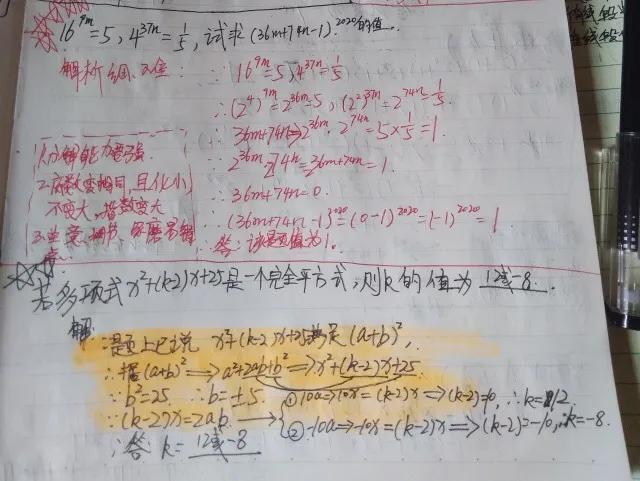 16^9m=5,4^37n=1/5,试求(36m+74n-1)^2020的值.
解析 ∵16^9m=5,4^37n=1/5
∴(2^4)^9m=2^36m=5,(2^2)^37n=2^74n=1/5.
2^36m·2^74n=5×1/5=1.
2^36m+74n=1.
∴36m+74n=0.
(36m+74n-1)^2020=(0-1)^2020=(-1)^2020=1
答:该题值为1.
2.底数变相同,且化小
不变大,指数变大
若多项式x²+(k-2)x+25是一个完全平方式,则k的值为 12或-8.
解:
∵题上已说 x²+(k-2)x+25满足(a+b)²,
∴把(a+b)²⟹a²+2ab+b²⟹x²+(k-2)x+25
∵b²=25 ∴b=±5.
∵(k-2)x=2ab.
①10a⟹10x=(k-2)x⟹(k-2)=10,∴k=12.
②-10a⟹-10x=(k-2)x⟹(k-2)=-10,∴k=-8.
∴答 k= 12或-8